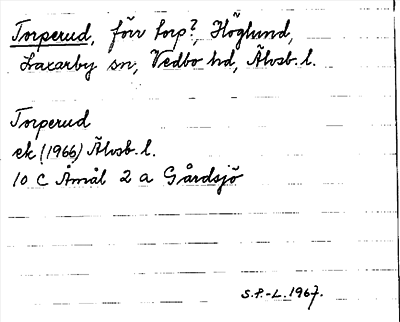 Torperud, förr torp?, Höglund,
Laxarby sn, Vedbo hd, Älvsb. l.
Torperud
ek (1966) Älvsb. l.
10 C Åmål 2 a Gårdsjö
S.P.-L. 1967.